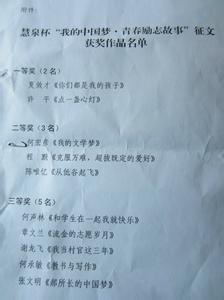 附件:
慧泉杯“我的中国梦·青春励志故事”征文
获奖作品名单
一等奖（2名）
夏效才《你们都是我的孩子》
许平《点一盏心灯》
二等奖（3名）
何宏彦《我的文学梦》
程默《克服万难，超拔既定的爱好》
陈唯忆《从低谷起飞》
三等奖（5名）
何声林《和学生在一起我就快乐》
章文兰《流金的志愿岁月》
谢龙飞《我当村官这三年》
何承敏《教书与写作》
张文明《郝所长的中国梦》